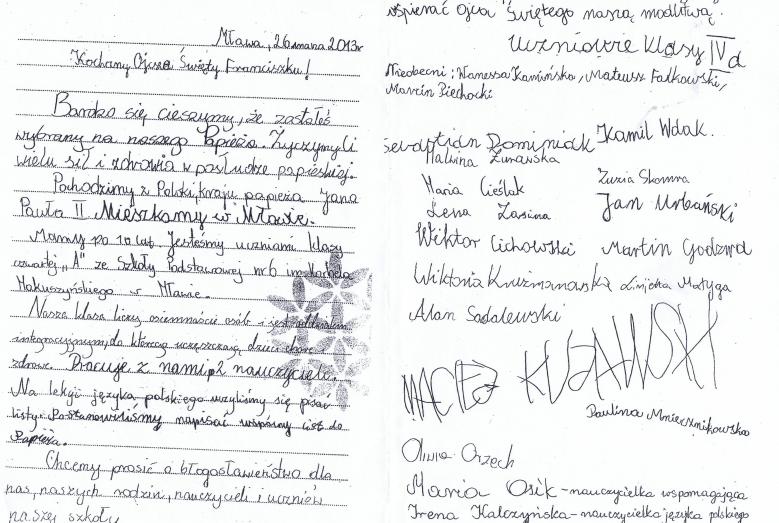 Mława, 26 marca 2013r
Kochany Ojcze Święty Franciszku!
Bardzo się cieszymy, że zostałeś
wybrany na naszego Papieża. Życzymy Ci
wielu sił i zdrowia w posłudze papieskiej.
Pochodzimy z Polski, kraju papieża Jana
Pawła II. Mieszkamy w Mławie.
Mamy po 10 lat. Jesteśmy uczniami klasy
czwartej „A" ze Szkoły Podstawowej nr 6 im. Kornela
Makuszyńskiego w Mławie.
Nasza klasa liczy osiemnaście osób i jest oddziałem
integracyjnym, do którego uczęszczają dzieci chore i
zdrowe. Pracuje z nami 2 nauczycieli.
Na lekcji języka polskiego uczyliśmy się pisać
listy. Postanowiliśmy napisać wspólny list do
Papieża.
Chcemy prosić o błogosławieństwo dla
nas, naszych rodzin, nauczycieli i uczniów
naszej szkoły
wspierać Ojca Świętego naszą modlitwą.
Uczniowie klasy IV a
Nieobecni: Wanessa Kamińska, Mateusz Falkowski,
Marcin Piechocki
Sebastian Dominiak Kamil Wdak.
Malwina Żurawska
Maria Cieślak Zuzia Skomra
Lena Zasina Jan Urbański
Wiktor Cichowski Martin Godzwa
Wiktoria Kuzmanowska Matyga
Alan Sadalewski
MACIEJ KUJAWSKI
Paulina
Oliwia Orzech
Maria Osik - nauczycielka wspomagająca
Irena Kalczyńska - nauczycielka języka polskiego